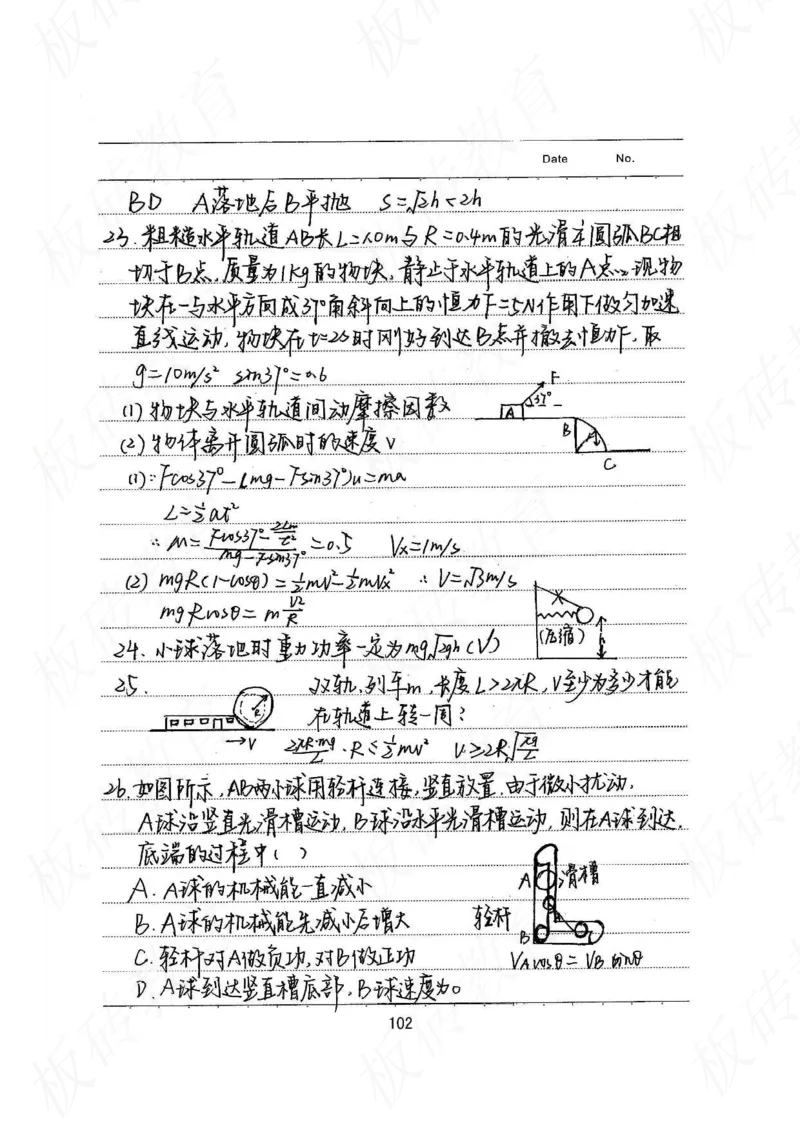 Date No.
BD A落地后B平抛 S=√2h<2h
23.粗糙水平轨道AB长L=1.0m与R=0.4m的光滑本圆弧BC相
切于B点,质量为1kg的物块,静止于水平轨道上的A点,现物
块在一与水平方向成37°角斜向上的恒力F=5N作用下做匀加速
直线运动,物块在t=2s时刚好到达B点并撤去恒力F,取
g=10m/s² sin37°=0.6
(1)物块与水平轨道间动摩擦因数
(2)物体离开圆弧时的速度v
F
37°
A
B
R
C
(1):Fcos37°-(mg-Fsin37°)u=ma
L=½at²
∴M=(Fcos37°-2Lm/t²)/(mg-Fsin37°)=0.5 Vx=1m/s
(2) mgR(1-cosθ)=½mv²-½mVx² ∴V=√3m/s
mgRcosθ=m v²/R
(压缩)
24.小球落地时重力功率一定为mg√2gh(V)
25. 双轨,列车m,长度L>2πR,V至少为多少才能
在轨道上转一周?
→V
2πR·mg/L·R≤½mv² V≥2R√(πg/L)
26.如图所示,AB两小球用轻杆连接,竖直放置,由于微小扰动,
A球沿竖直光滑槽运动,B球沿水平光滑槽运动,则在A球到达
底端的过程中( )
A.A球的机械能一直减小
B.A球的机械能先减小后增大
C.轻杆对A做负功,对B做正功
D.A球到达竖直槽底部,B球速度为0
A 滑槽
轻杆
B
VAcosθ=VBsinθ
102
板砖教育